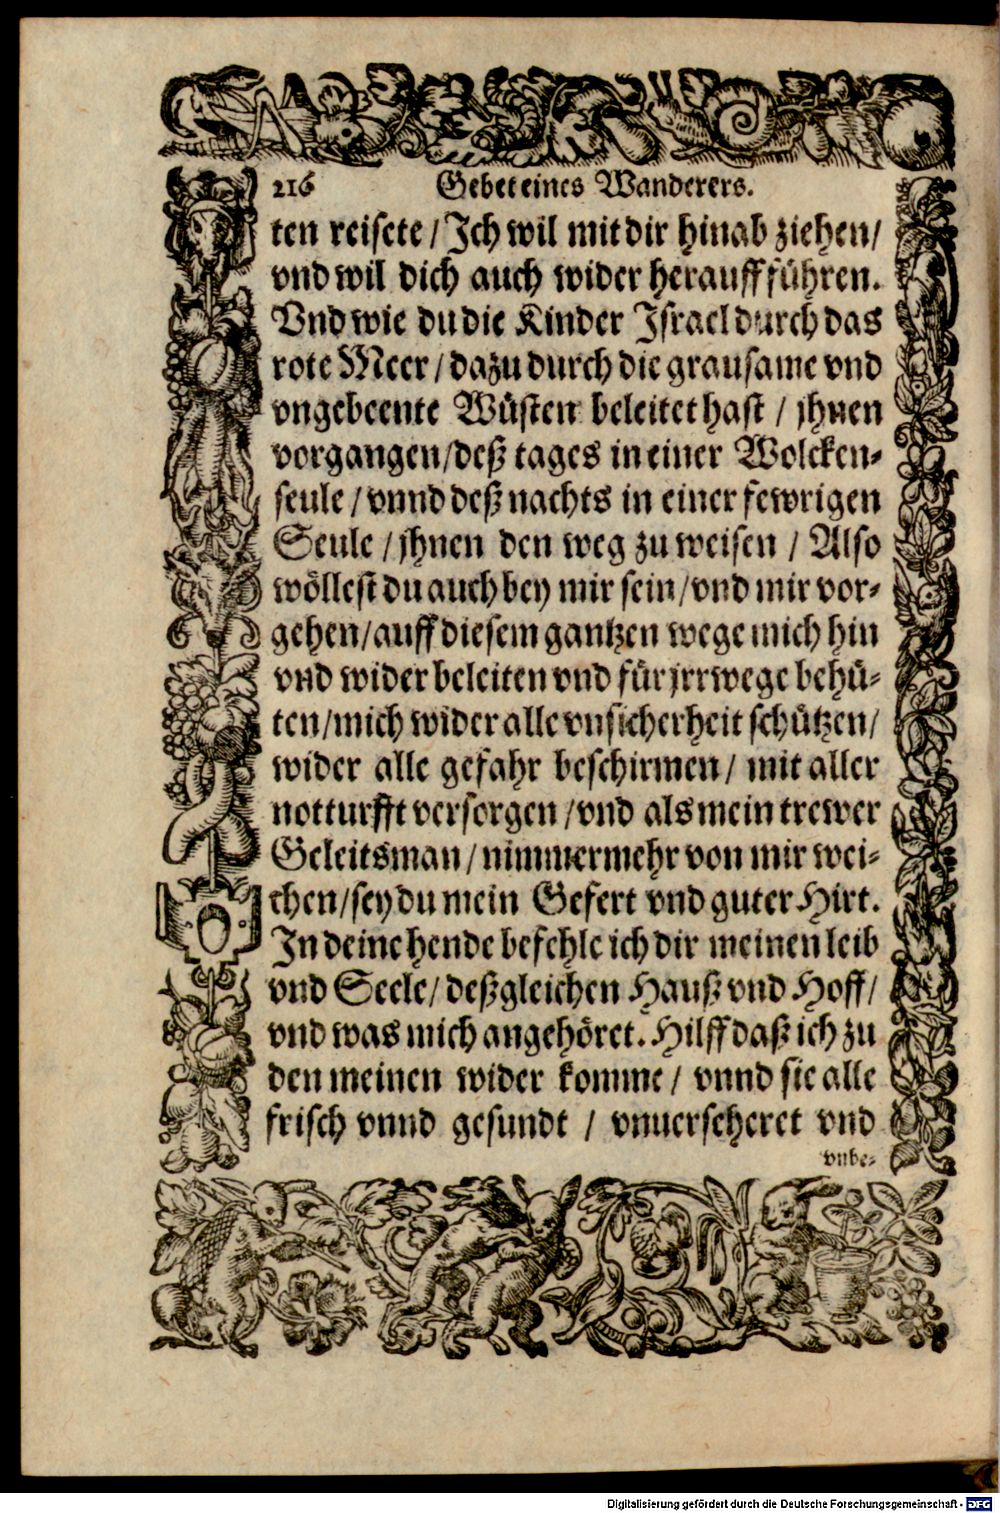 216 Gebet eines Wanderers.
ten reisete / Ich wil mit dir hinab ziehen /
vnd wil dich auch wider herauff führen.
Vnd wie du die Kinder Israel durch das
rote Meer / dazu durch die grausame vnd
vngebeente Wüsten beleitet hast / jhnen
vorgangen / deß tages in einer Wolcken-
seule / vnnd deß nachts in einer fewrigen
Seule / jhnen den weg zu weisen / Also
wöllest du auch bey mir sein / vnd mir vor-
gehen / auff diesem gantzen wege mich hin
vnd wider beleiten vnd für jrrwege behü-
ten / mich wider alle vnsicherheit schützen /
wider alle gefahr beschirmen / mit aller
notturfft versorgen / vnd als mein trewer
Geleitsman / nimmermehr von mir wei-
chen / sey du mein Gefert vnd guter Hirt.
In deine hende befehle ich dir meinen leib
vnd Seele / deßgleichen Hauß vnd Hoff /
vnd was mich angehöret. Hilff daß ich zu
den meinen wider komme / vnnd sie alle
frisch vnnd gesundt / vnuerscheret vnd
vnbe-
Digitalisierung gefördert durch die Deutsche Forschungsgemeinschaft - DFG